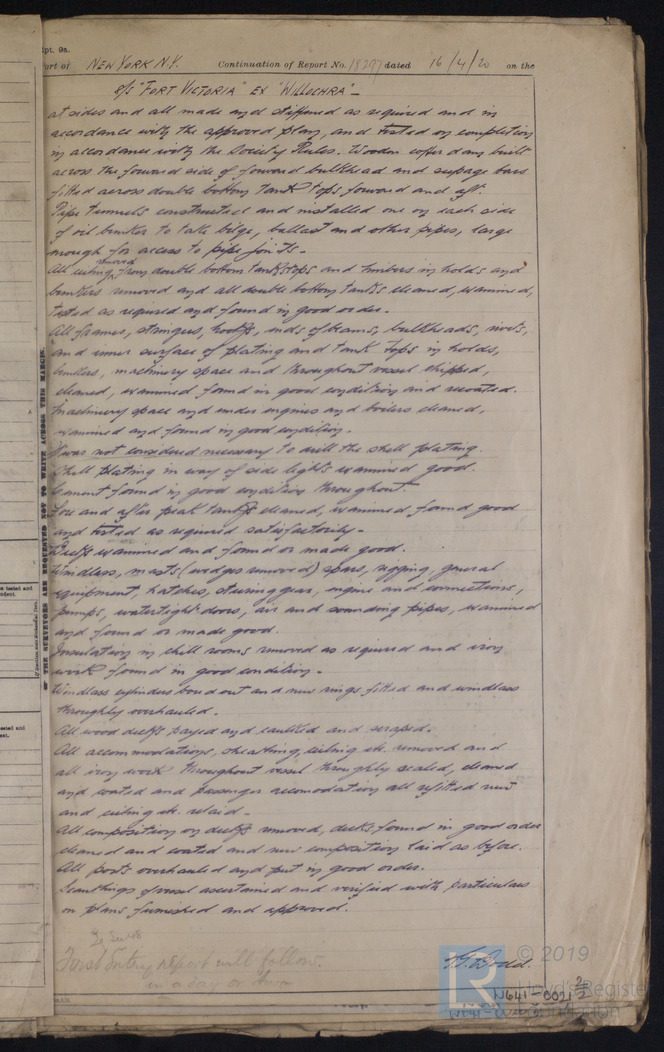 Rpt. 9a.
Port of NEW YORK N.Y. Continuation of Report No. 18297 dated 16/4/20 on the
s/s "FORT VICTORIA" EX "WILLOCHRA"
at sides and all made and stiffened as required and in
accordance with the approved plan, and tested on completion
in accordance with the Society Rules. Wooden cofferdam built
across the forward side of forward bulkhead and seepage bars
fitted across double bottom tank tops forward and aft.
Pipe tunnels constructed and installed one on each side
of oil bunker to take bilge, ballast and other pipes, large
enough for access to pipe joints.
All ceiling removed from double bottom tank tops and timbers in holds and
bunkers removed and all double bottom tanks cleaned, examined,
tested as required and found in good order.
All frames, stringers, hooks, ends of beams, bulkheads, rivets,
and inner surface of plating and tank tops in holds,
bunkers, machinery space and throughout vessel chipped,
cleaned, examined found in good condition and recoated.
Machinery space and under engines and boilers cleaned,
examined and found in good condition.
It was not considered necessary to drill the shell plating.
Shell plating in way of side lights examined good.
Cement found in good condition throughout.
Fore and after peak tanks cleaned, examined found good
and tested as required satisfactorily.
Decks examined and found or made good.
Windlass, masts (wedges removed) spars, rigging, general
equipment, hatches, steering gear, engine and connections,
pumps, watertight doors, air and sounding pipes, examined
and found or made good.
Insulation in chill rooms removed as required and iron
work found in good condition.
Windlass cylinders bored out and new rings fitted and windlass
throughly overhauled.
All wood decks payed and caulked and scraped.
All accommodations, sheathing, ceiling etc. removed and
all iron work throughout vessel throughly scaled, cleaned
and coated and passenger accomodation all refitted new
and ceiling etc. relaid.
All composition on decks removed, decks found in good order
cleaned and coated and new composition laid as before.
All ports overhauled and put in good order.
Scantlings of vessel ascertained and verified with particulars
on plans furnished and approved.
First Entry report will follow
in a day or two
Dodd.
OF THE SURVEYORS ARE REQUESTED NOT TO WRITE ACROSS THIS MARGIN.
© 2019
LR
Lloyd's Register
Foundation
W641-0021 2/2